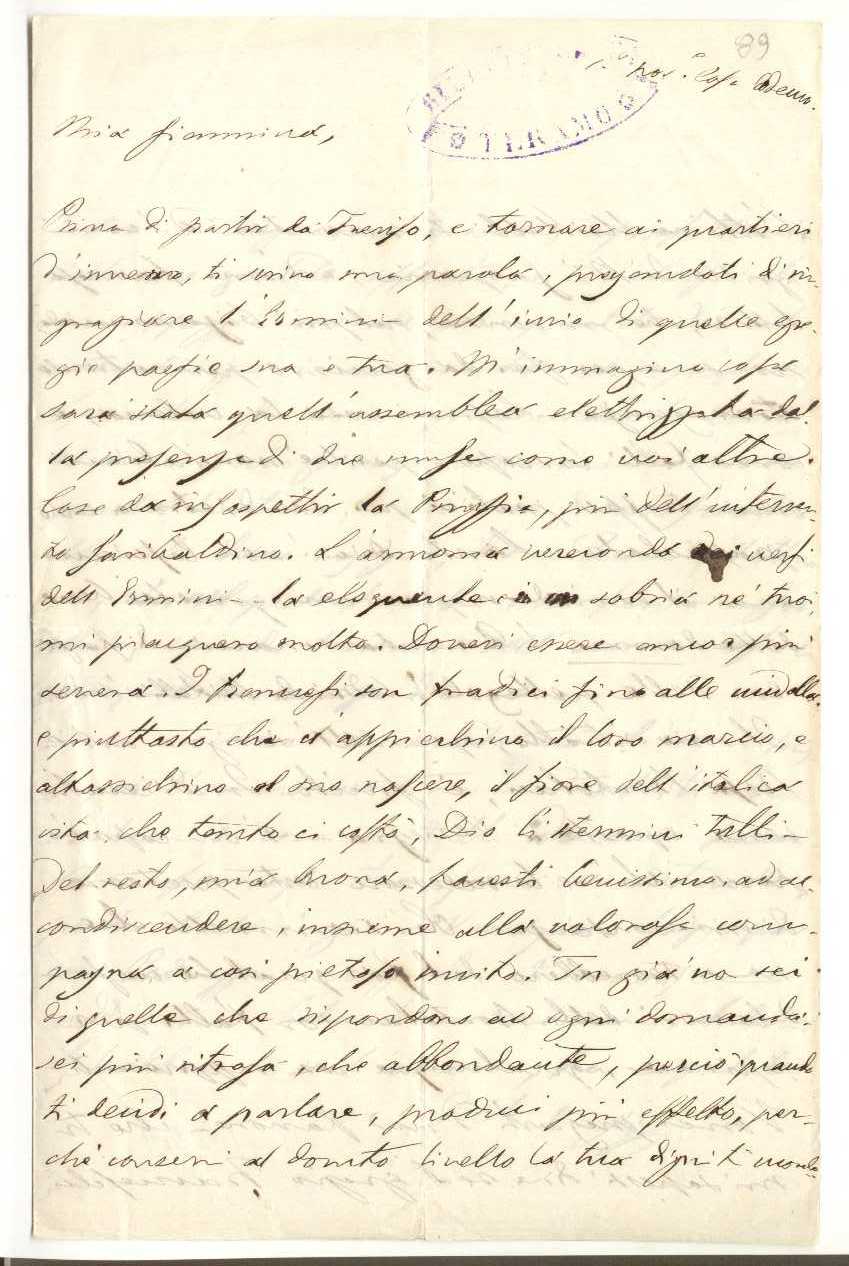 89
Mia Giannina,
Prima di partir da Treviso, e tornare ai quartieri
d'inverno, ti scrivo una parola, pregandoti di rin-
graziare l'Ermini dell'invio di quelle egre-
gie poesie sua e tua. M'immagino cosa
sarà stata quell'assemblea elettrizzata dal-
la presenza di due muse come voi altre.
Cose da insospettir la Prussia, più dell'interven-
to Garibaldino. L'armonia vereconda dei versi
dell'Ermini la eloquente sobria ne' tuoi,
mi piacquero molto. Dovevi essere ancor più
severa. I francesi son fradici fino alle midolla,
e piuttosto che ci appicchino il loro marcio, e
al suo nascere, il fiore dell'italica
vita, che tanto ci costò, Dio li stermini tutti
Del resto, mia buona, facesti benissimo, ad ac-
condiscendere, insieme alla valorosa com-
pagna a così pietoso invito. Tu già no sei
di quelle che rispondono ad ogni domanda;
sei più ritrosa, che abbondante, perciò quando
ti decidi a parlare, produci più effetto, per-
chè conservi al dovuto livello la tua dignità
TERAMO